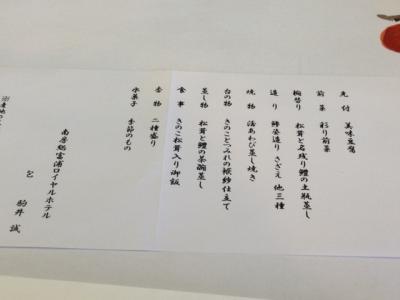 先付　美味豆腐
前菜　彩り前菜
椀替り　松茸と名残り鱧の土瓶蒸し
造り　鯵姿造り　さざえ　他三種
焼物　活あわび蒸し焼き
台の物　きのことつみれの袱紗仕立て
蒸し物　松茸と鱧の茶碗蒸し
食事　きのこ松茸入り御飯
香物　二種盛り
水菓子　季節のもの
南房総富浦ロイヤルホテル
駒井　誠